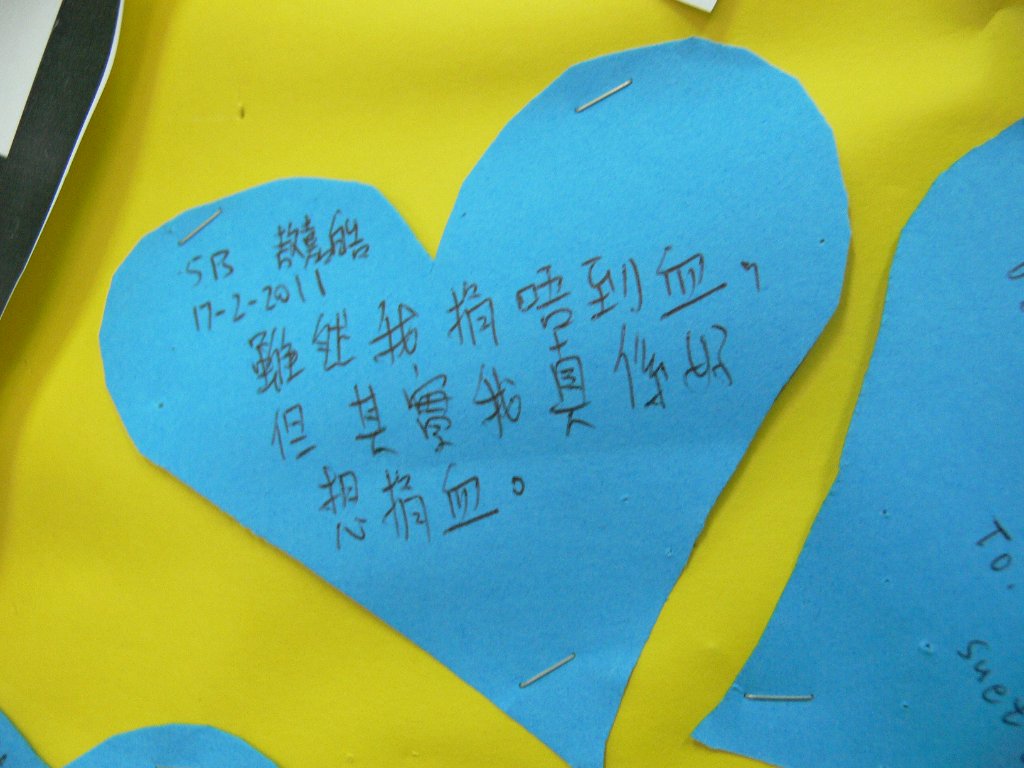 5B 敖嘉皓
17-2-2011
雖然我捐唔到血，
但其實我真係好
想捐血。
To.
Suet